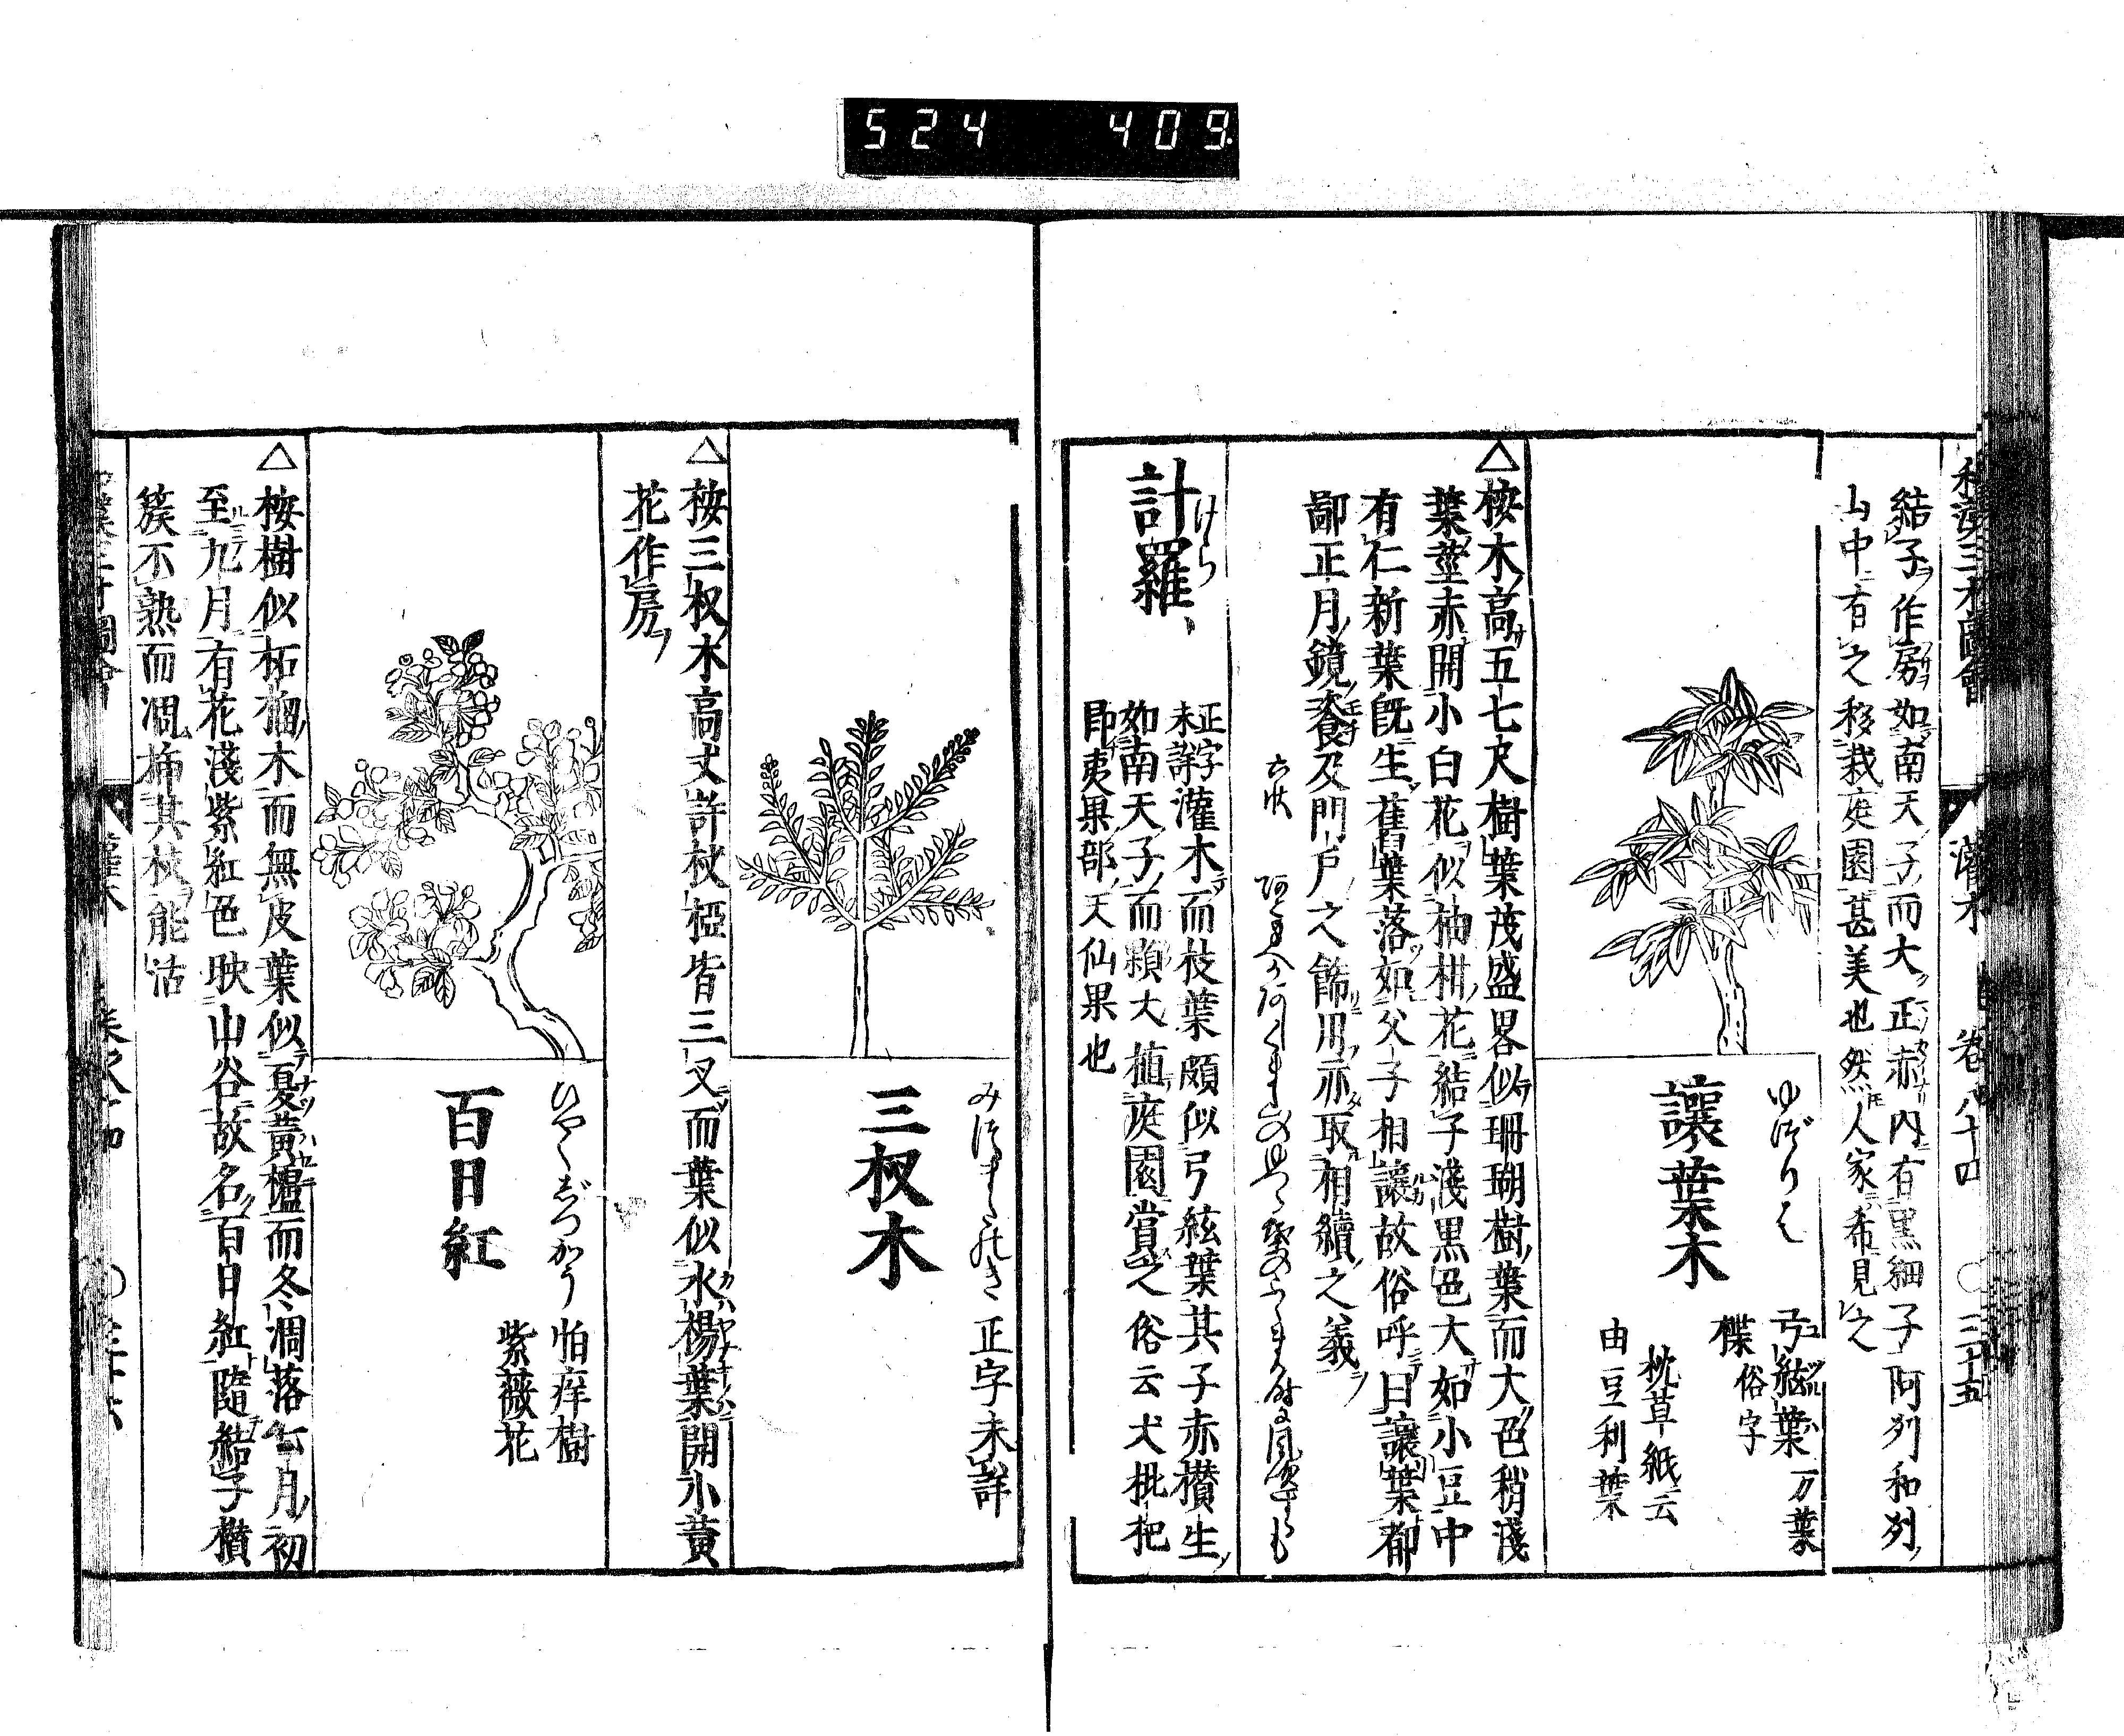 524 409
和漢三才圖會 灌木 卷八十四 ○三十五
結子作房如南天子而大正赤內有黑細子阿列和列
山中有之移栽庭園甚美也然人家希見之
ゆづりは
讓葉木
弓絃葉 万葉
楪 俗字
枕草紙云
由豆利葉
△桉木高五七尺樹葉茂盛畧似珊瑚樹葉而大色稍淺
葉莖赤開小白花似柚柑花結子淺黑色大如小豆中
有仁新葉旣生舊葉落如父子相讓故俗呼曰讓葉都
鄙正月鏡餈及門戸之飾用亦取相續之義
六帖
けら
計羅
正字
未詳
灌木而枝葉頗似弓絃葉其子赤攅生
如南天子而頼大植庭園賞之俗云犬枇杷
卽夷果部天仙果也
みつまたのき
三杈木
正字未詳
△桉三杈木高丈許杖椏皆三叉而葉似水楊葉開小黃
花作房
ひやくじつかう
百日紅
怕痒樹
紫薇花
△桉樹似柘榴木而無皮葉似夏黃櫨而冬凋落六月初
至九月有花淺紫紅色映山谷故名百日紅隨結子攅
簇不熟而凋揷其枝能活